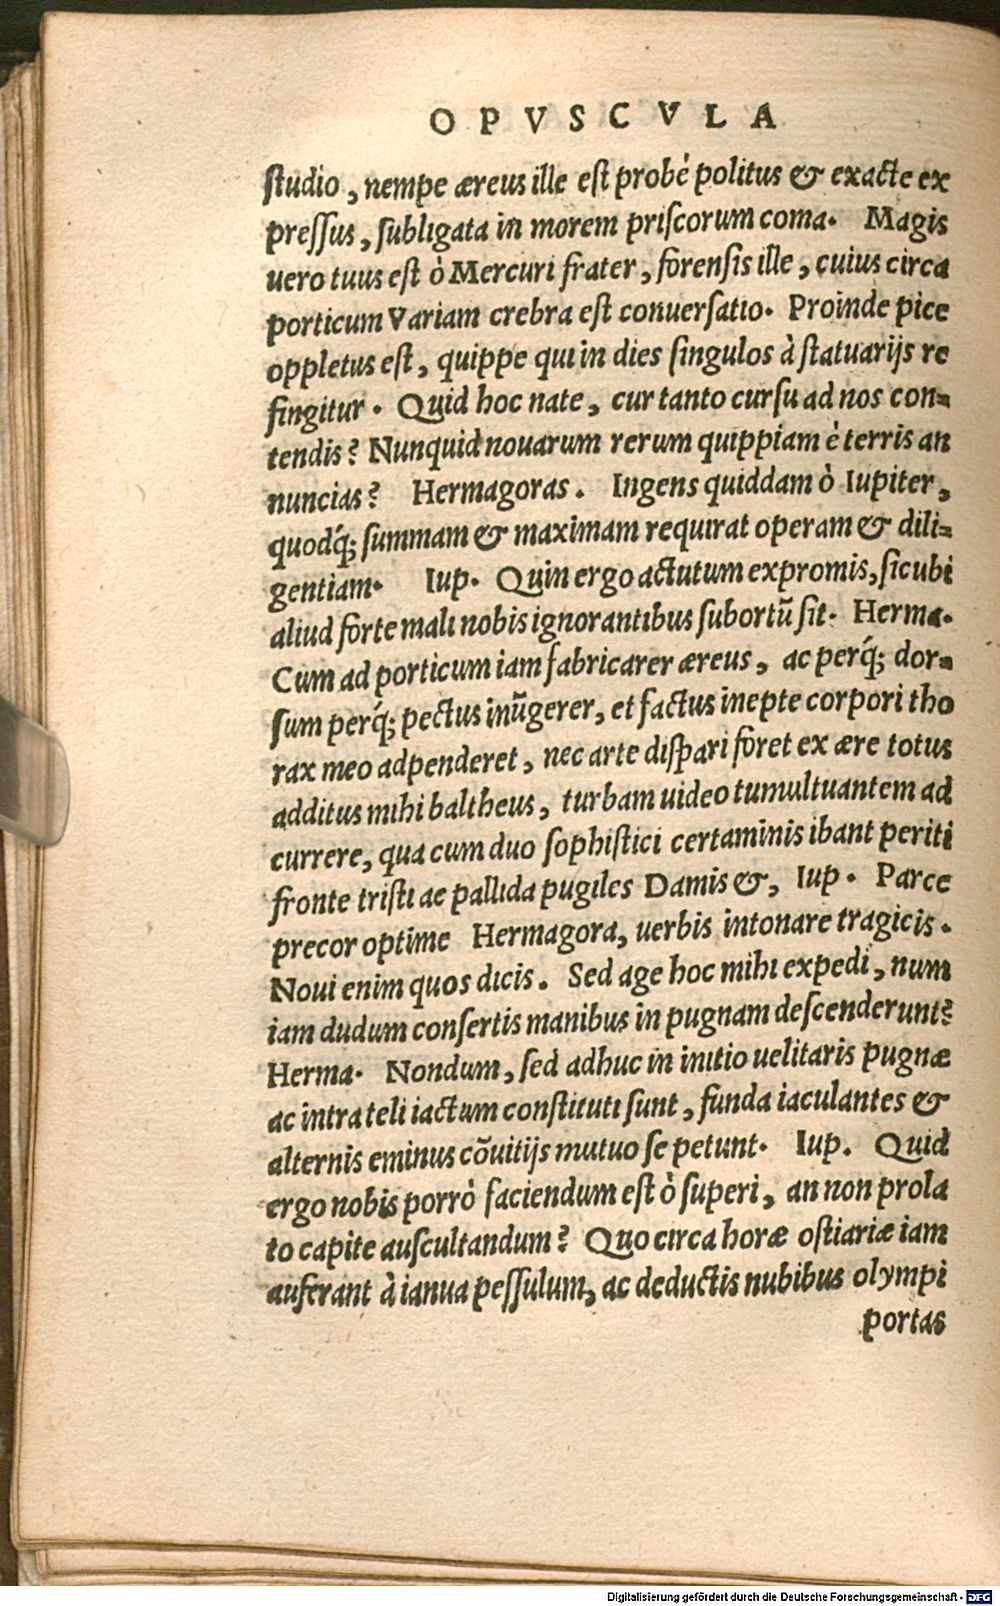 OPVSCVLA
studio, nempe æreus ille est probé politus & exacte ex
pressus, subligata in morem priscorum coma. Magis
uero tuus est ò Mercuri frater, forensis ille, cuius circa
porticum Variam crebra est conuersatio. Proinde pice
oppletus est, quippe qui in dies singulos à statuarijs re
fingitur. Quid hoc nate, cur tanto cursu ad nos con=
tendis? Nunquid nouarum rerum quippiam è terris an
nuncias? Hermagoras. Ingens quiddam ò Iupiter,
quodq́; summam & maximam requirat operam & dili=
gentiam. Iup. Quin ergo actutum expromis, sicubi
aliud forte mali nobis ignorantibus subortũ sit. Herma.
Cum ad porticum iam fabricarer æreus, ac perq́; dor=
sum perq́; pectus inũgerer, et factus inepte corpori tho
rax meo adpenderet, nec arte dispari foret ex ære totus
additus mihi baltheus, turbam uideo tumultuantem ad
currere, qua cum duo sophistici certaminis ibant periti
fronte tristi ae pallida pugiles Damis &, Iup. Parce
precor optime Hermagora, uerbis intonare tragicis.
Noui enim quos dicis. Sed age hoc mihi expedi, num
iam dudum consertis manibus in pugnam descenderunt?
Herma. Nondum, sed adhuc in initio uelitaris pugnæ
ac intra teli iactum constituti sunt, funda iaculantes &
alternis eminus cõuitijs mutuo se petunt. Iup. Quid
ergo nobis porrò faciendum est ò superi, an non prola
to capite auscultandum? Quo circa horæ ostiariæ iam
auferant à ianua pessulum, ac deductis nubibus olympi
portas
Digitalisierung gefördert durch die Deutsche Forschungsgemeinschaft - DFG